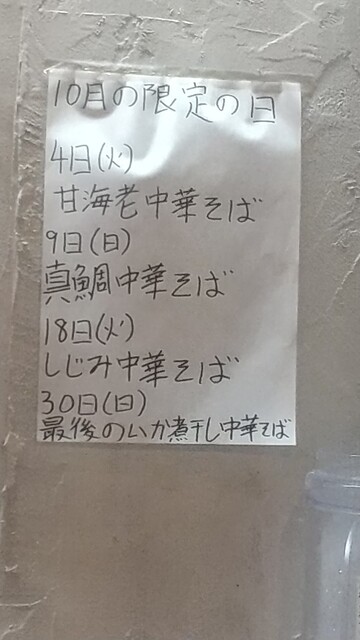 10月の限定の日
4日(火)
甘海老中華そば
9日(日)
真鯛中華そば
18日(火)
しじみ中華そば
30日(日)
最後のムカ煮干し中華そば